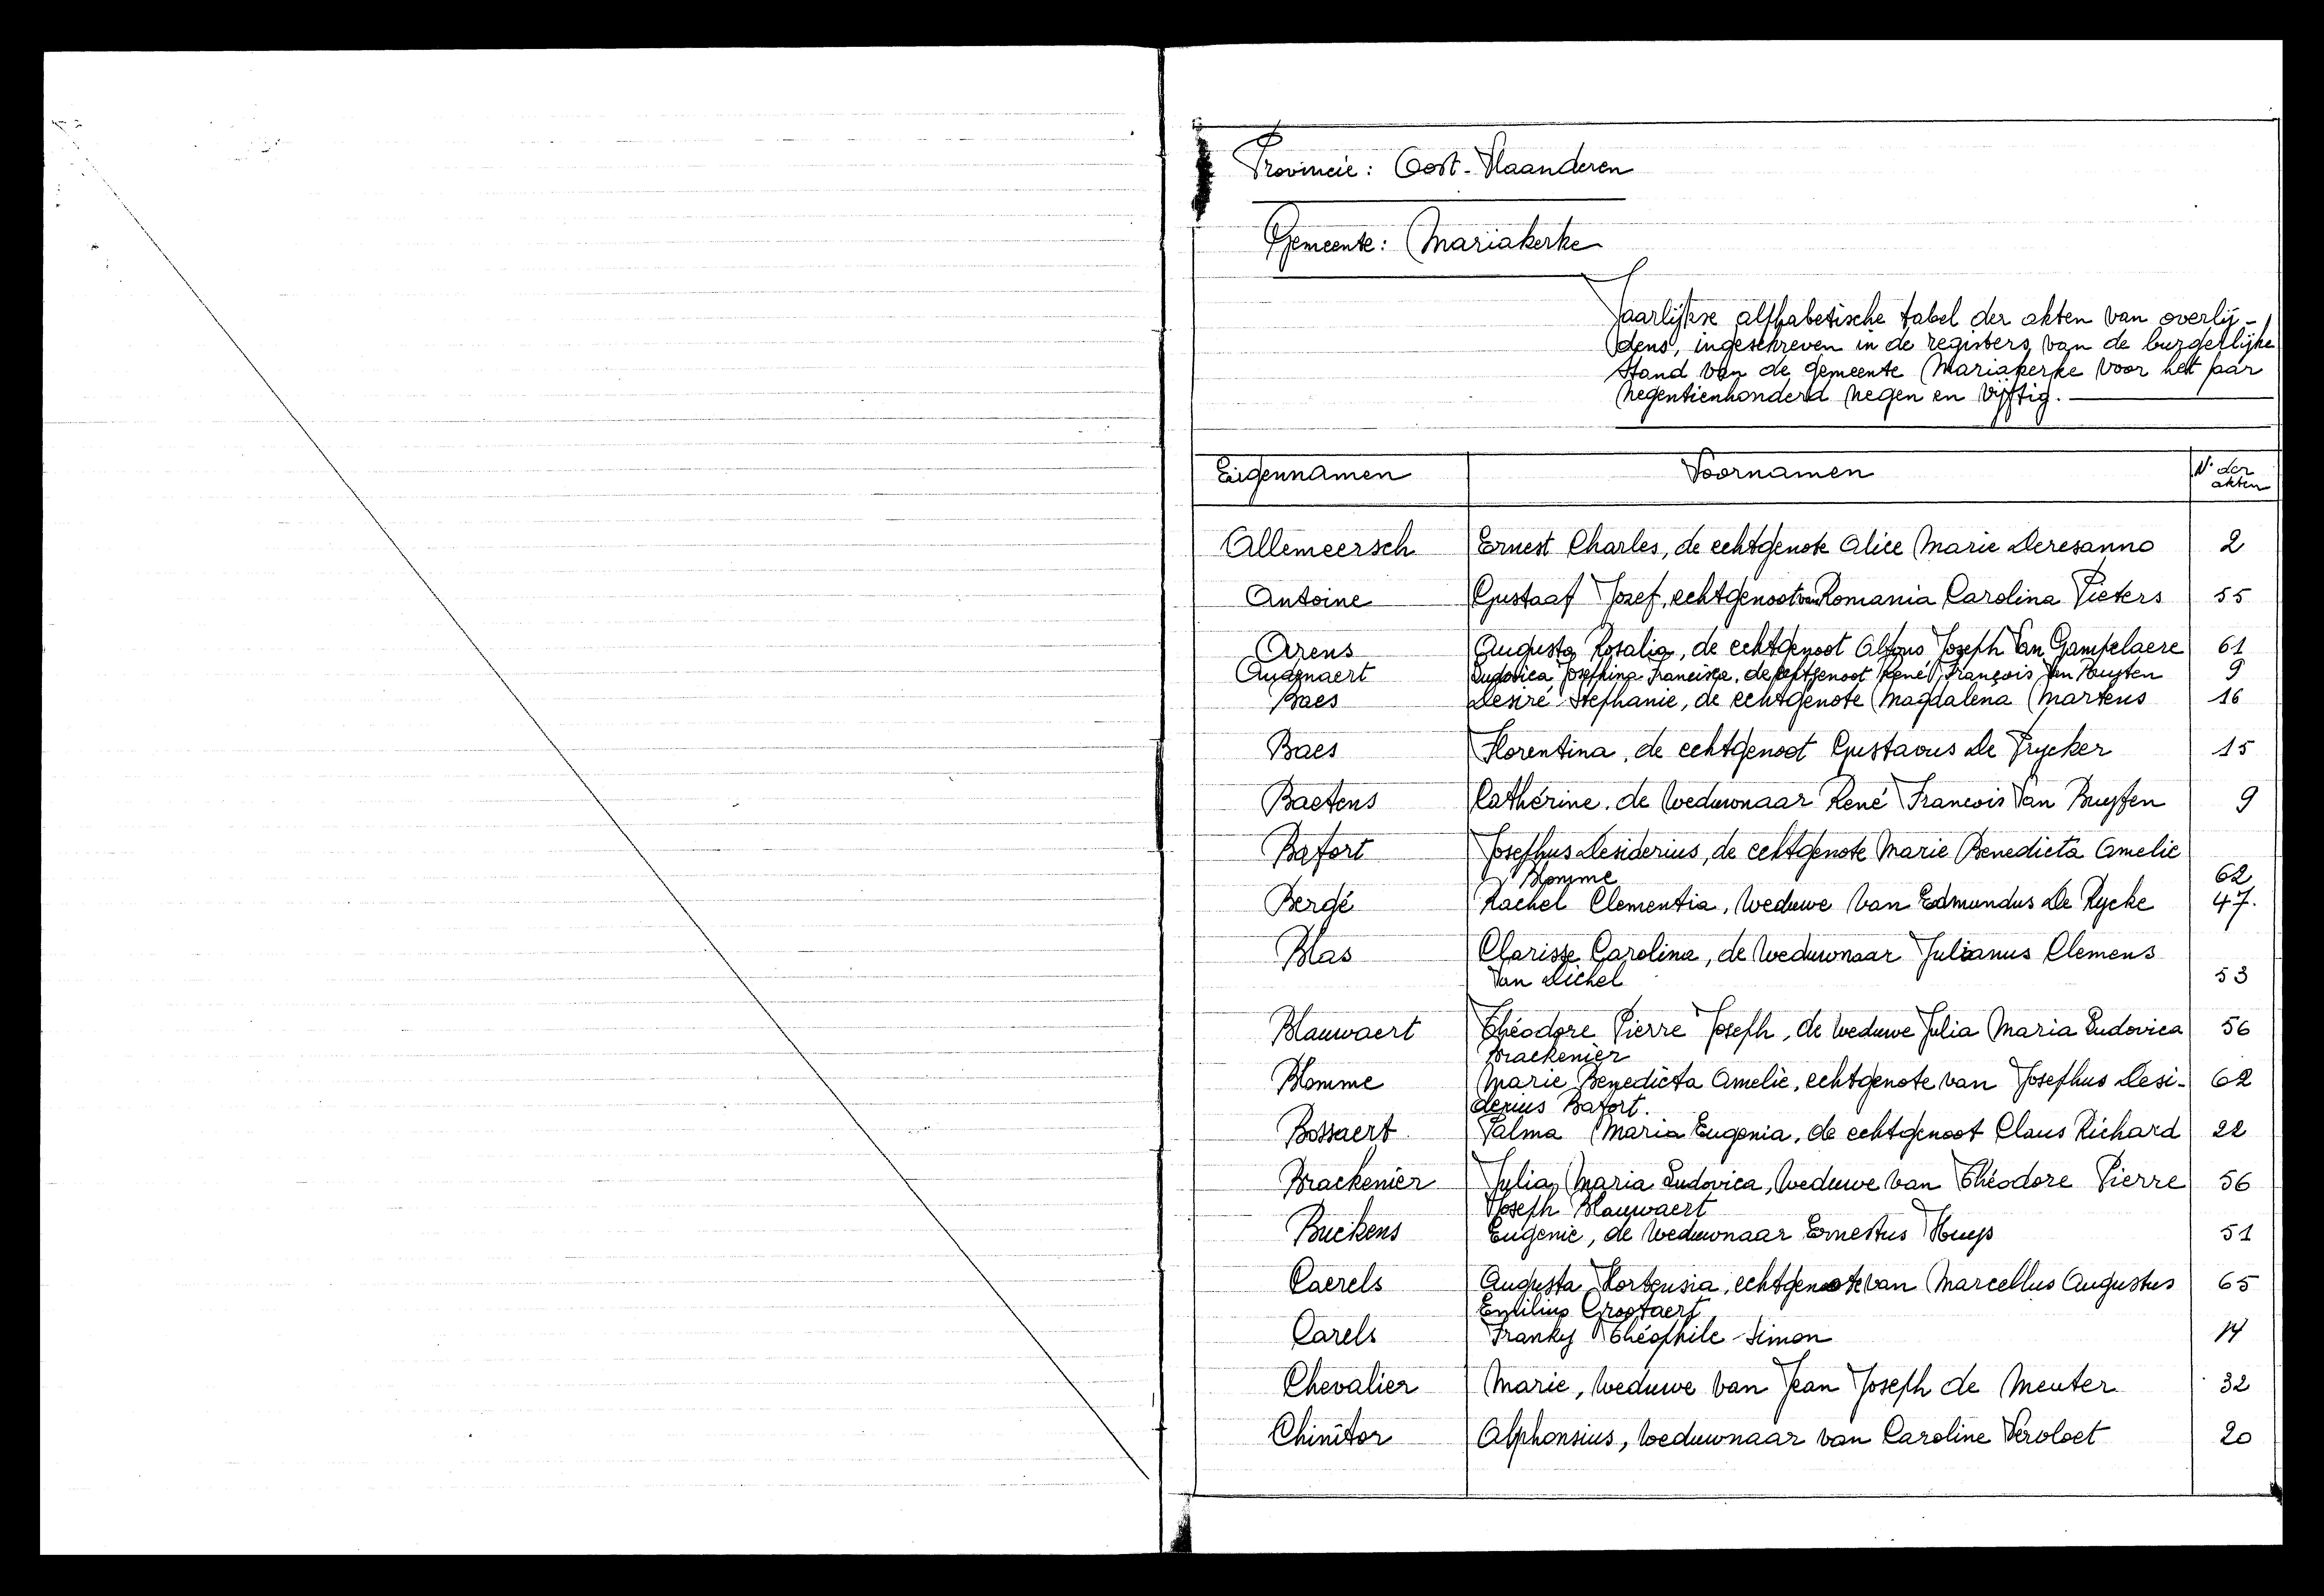 Provincie: Oost-Vlaanderen
Gemeente: Mariakerke
Jaarlijkse alfhabetische tabel der akten van overlij-
dens, ingeschreven in de registers van de burgerlijke
stand van de gemeente Mariakerke voor het jaar
negentienhonderd negen en vijftig.
Eigennamen Voornamen Nr der akten
Allemeersch Ernest Charles, de echtgenote Alice Marie Deresanno 2
Antoine Gustaaf Jozef, echtgenoot van Romania Carolina Pieters 55
Arens Augusta Rosalia, de echtgenoot Alfons Joseph Van Gampelaere 61
Audenaert Ludovica Josephina Francisca, de echtgenoot René François Van Buyten 9
Baes Desiré Stephanie, de echtgenote Magdalena Martens 16
Baes Florentina, de echtgenoot Gustavus De Frycker 15
Baetens Cathérine, de weduwnaar René Francois Van Buyten 9
Bafort Josephus Desiderius, de echtgenote Marie Benedicta Amelie
Blomme 62
Bergé Rachel Clementia, weduwe van Edmundus De Rycke 47.
Blas Clarisse Carolina, de weduwnaar Julianus Clemens
Van Dichel 53
Blauwaert Théodore Pierre Joseph, de weduwe Julia Maria Ludovica 56
Brackenier
Blomme Marie Benedicta Amelie, echtgenote van Josephus Desi- 62
derius Bafort.
Bossaert Palma Maria Eugenia, de echtgenoot Claus Richard 22
Brackenier Julia Maria Ludovica, weduwe van Théodore Pierre 56
Joseph Blauwaert
Buckens Eugenie, de weduwnaar Ernestus Huys 51
Caerels Augusta Hortensia, echtgenote van Marcellus Augustus 65
Emilius Grootaert
Carels Franky Théophile Simon 14
Chevalier Marie, weduwe van Jean Joseph de Meuter 32
Chinitor Alphonsius, weduwnaar van Caroline Vervloet 20